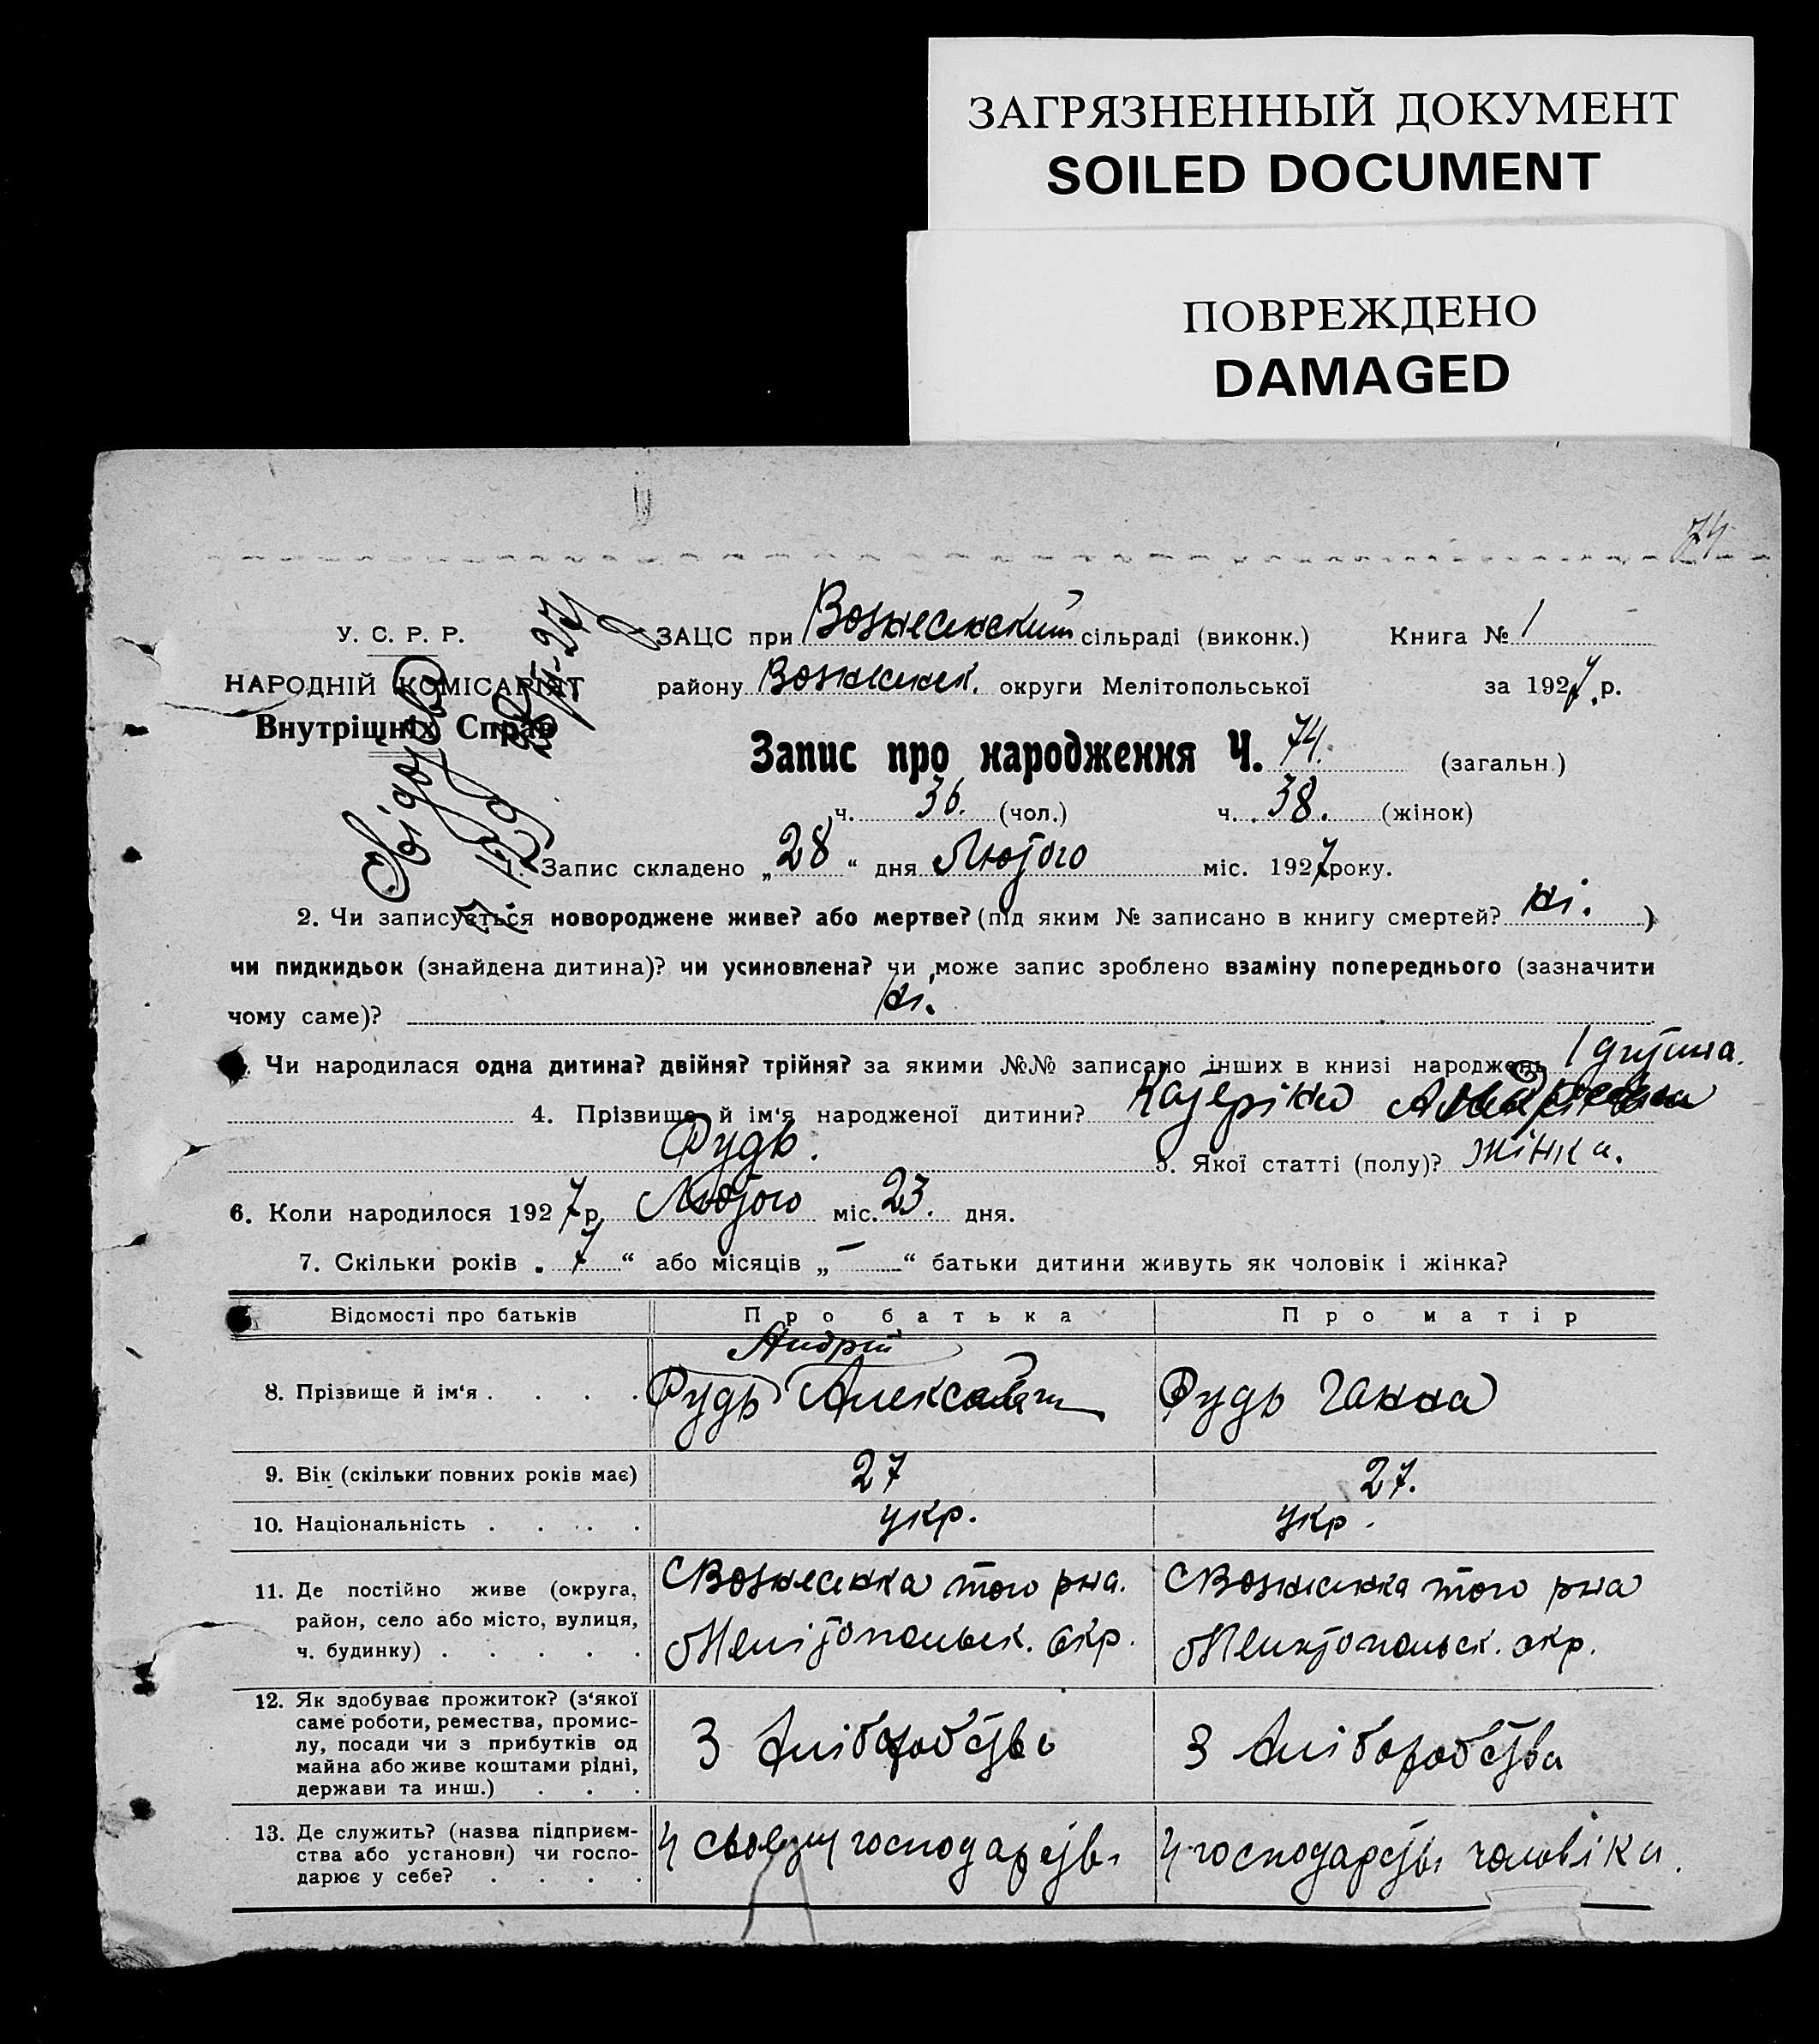 ЗАГРЯЗНЕННЫЙ ДОКУМЕНТ
SOILED DOCUMENT
ПОВРЕЖДЕНО
DAMAGED
74
У. С. Р. Р.
НАРОДНІЙ КОМІСАРІЯТ
Внутрішніх Справ
ЗАЦС при Вознесенский сільраді (виконк.) Книга № 1
району Вознесенск. округи Мелітопольської за 1927 р.
Запис про народження Ч. 74. (загальн.)
ч. 36. (чол.) ч. 38. (жінок)
1. Запис складено „28“ дня Лютого міс. 1927 року.
2. Чи записується новороджене живе? або мертве? (під яким № записано в книгу смертей? ні. )
чи пидкидьок (знайдена дитина)? чи усиновлена? чи може запис зроблено взаміну попереднього (зазначити
чому саме)? ні.
Чи народилася одна дитина? двійня? трійня? за якими №№ записано інших в книзі народжень 1 дитина.
4. Прізвище й ім‘я народженої дитини? Катеріна
Рудь. 5. Якої статті (полу)? жінка.
6. Коли народилося 1927 р. Лютого міс. 23. дня.
7. Скільки років „7“ або місяців „—“ батьки дитини живуть як чоловік і жінка?
Відомості про батьків Про батька Про матір
Андрій
8. Прізвище й ім‘я . . . . Рудь Рудь Ганна
9. Вік (скільки повних років має) 27 27.
10. Національність . . . . укр. укр.
11. Де постійно живе (округа, район, село або місто, вулиця, ч. будинку) . . . . .
С Вознесенка того рна. Мелітопольск. окр.
С Вознесенка того рна Мелитопольск. окр.
12. Як здобуває прожиток? (з‘якої саме роботи, ремества, промислу, посади чи з прибутків од майна або живе коштами рідні, держави та инш.) . . .
З хліборобства
З хліборобства
13. Де служить? (назва підприємства або установи) чи господарює у себе? . . . .
У своєму господарстві
У господарстві чоловіка.